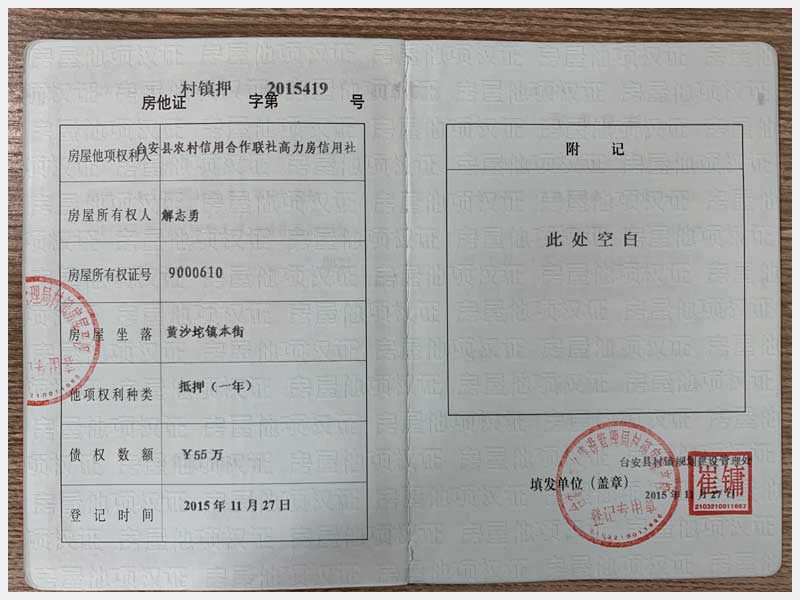 村镇押 2015419
房他证 字第 号
房屋他项权利人 台安县农村信用合作联社高力房信用社
房屋所有权人 解志勇
房屋所有权证号 9000610
房屋坐落 黄沙坨镇本街
他项权利种类 抵押（一年）
债权数额 ￥55万
登记时间 2015年11月27日
附记
此处空白
台安县村镇规划建设管理处
填发单位（盖章）
2015年11月27日
崔镛
2103210011667
登记专用章